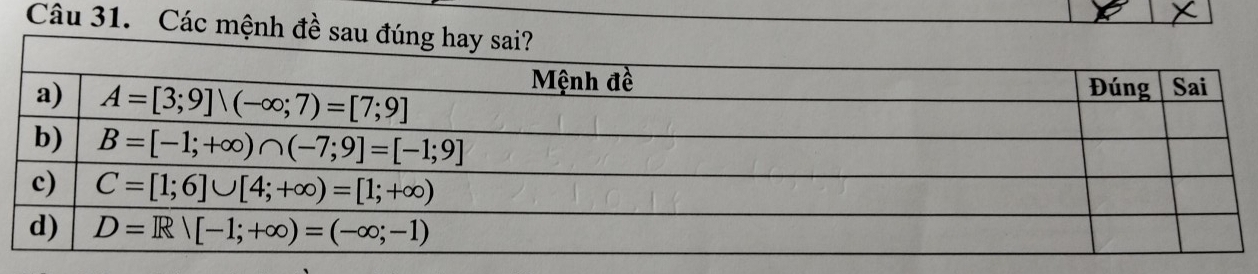 Câu 31. Các mệnh đề sau đúng hay sai?
Mệnh đề Đúng Sai
a) A=[3;9]\(−∞;7)=[7;9]
b) B=[−1;+∞)∩(−7;9]=[−1;9]
c) C=[1;6]∪[4;+∞)=[1;+∞)
d) D=ℝ\[−1;+∞)=(−∞;−1)